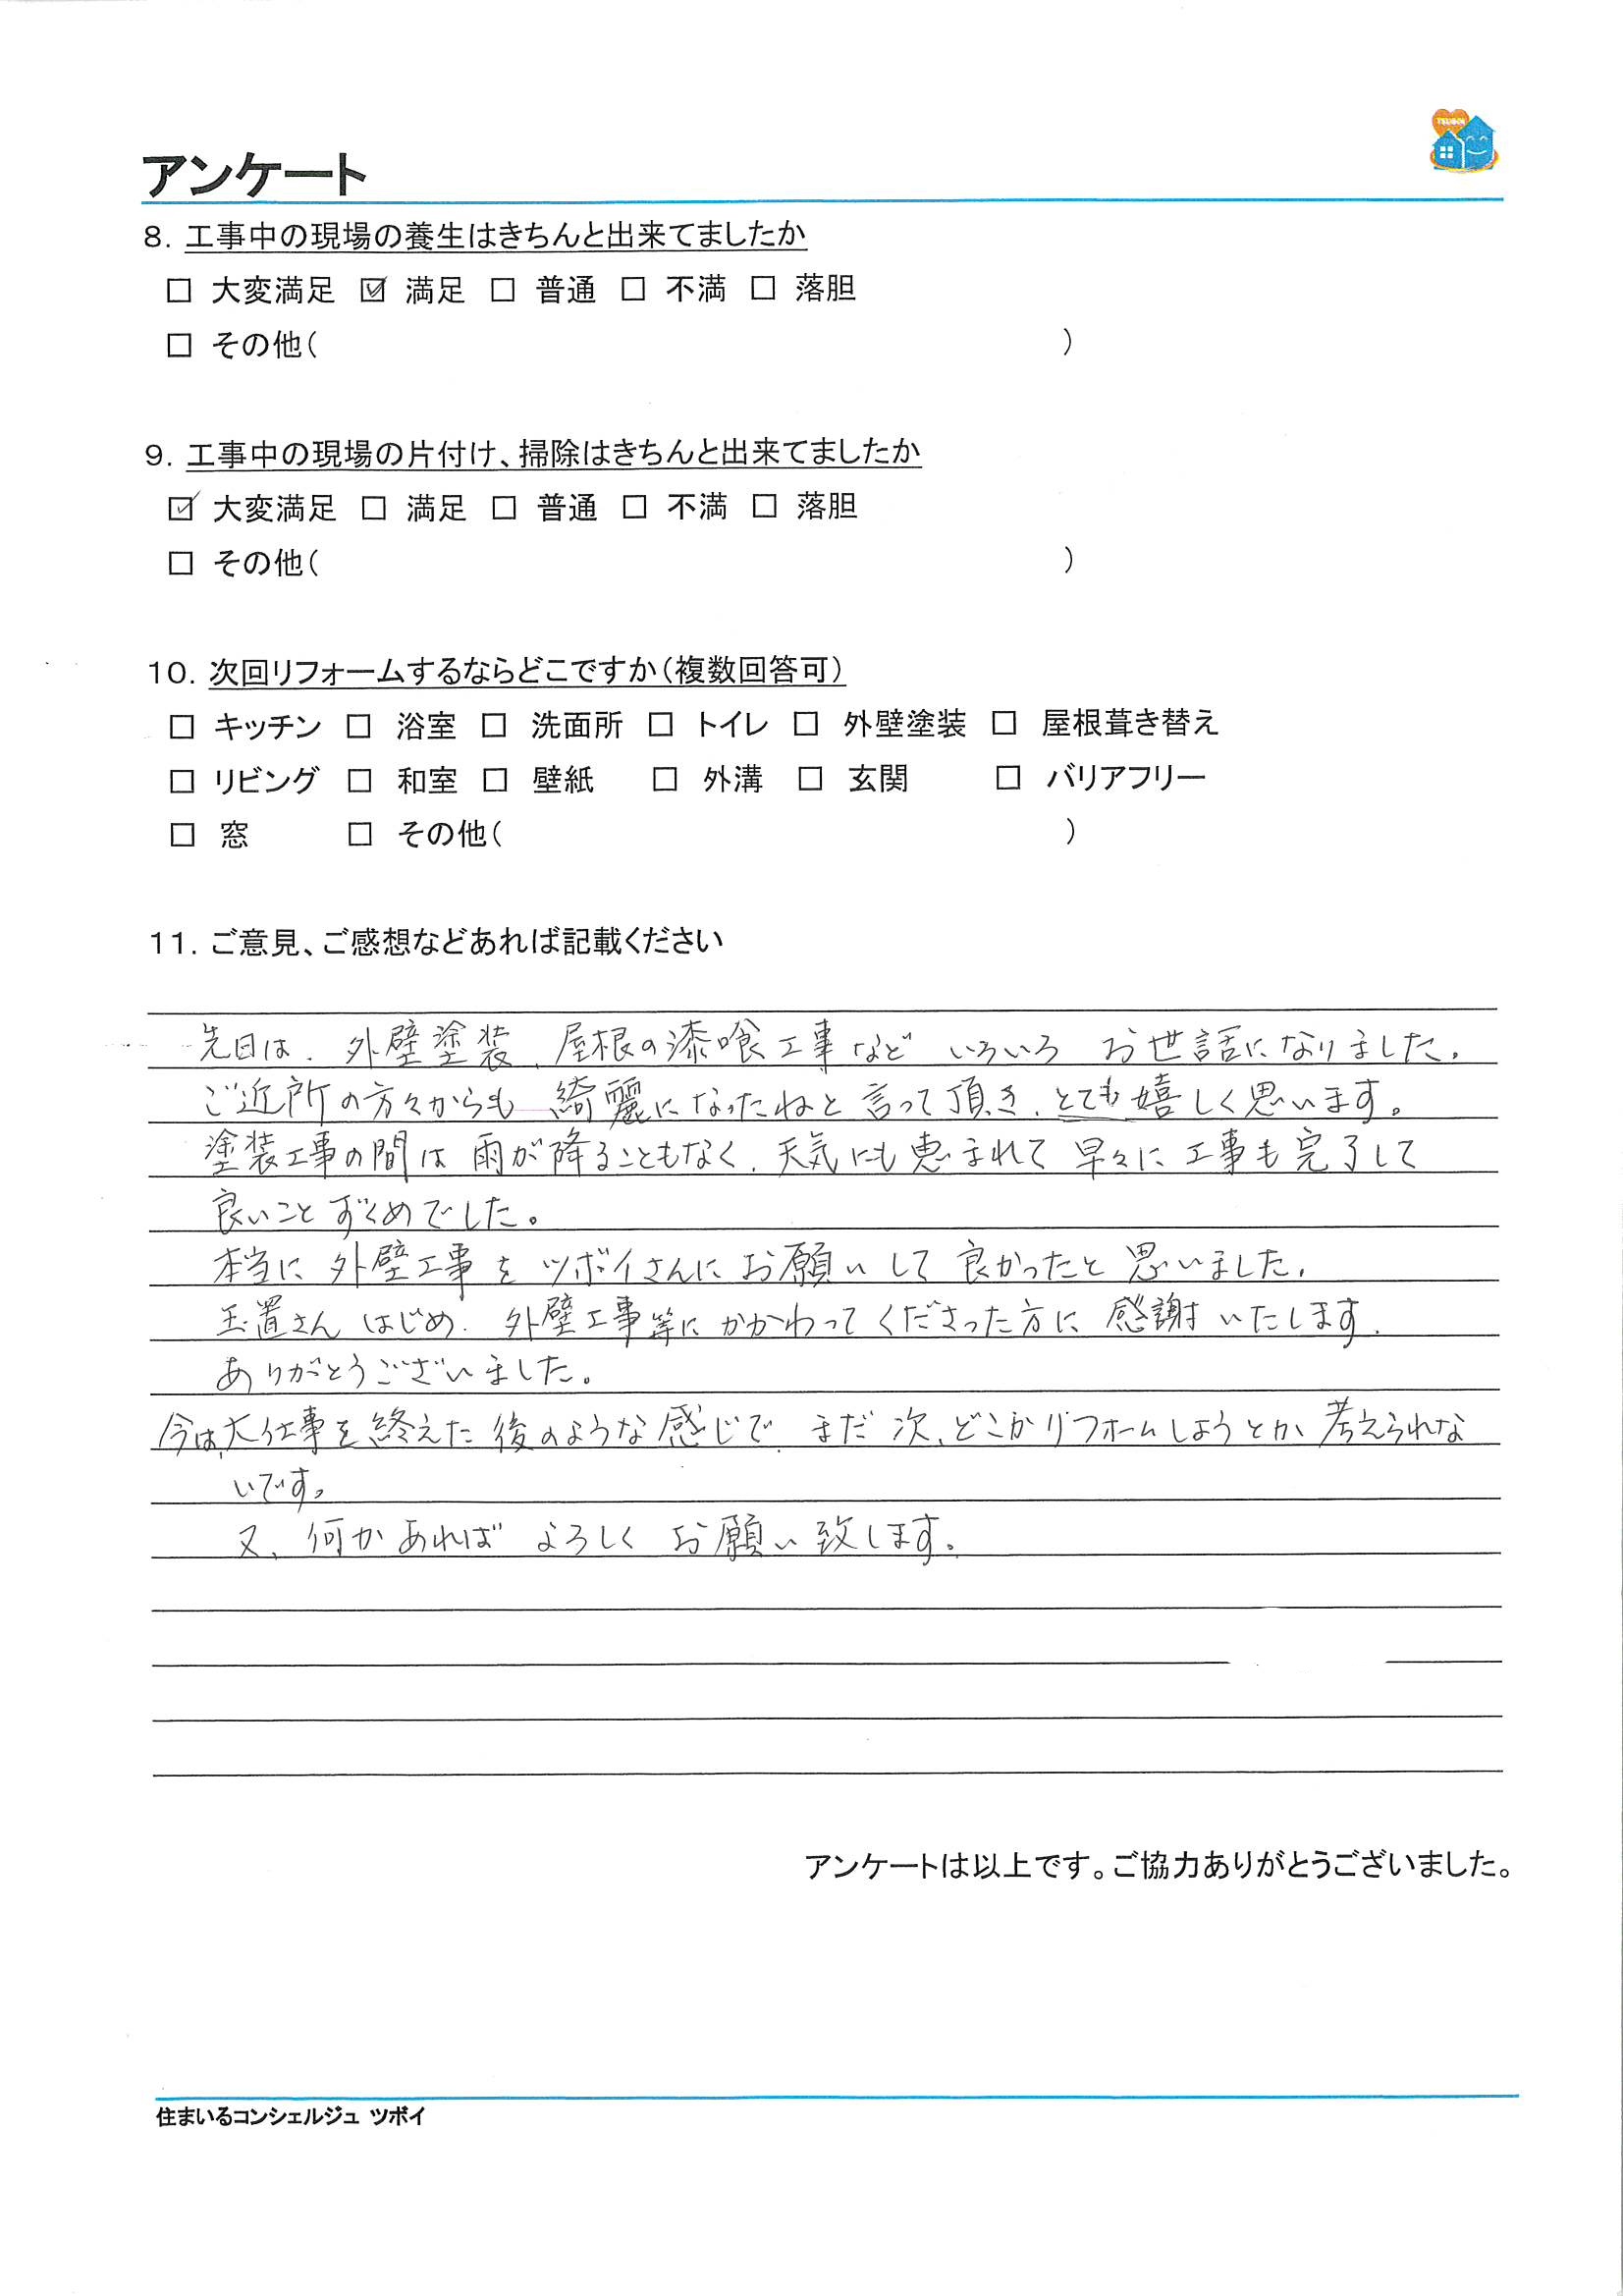 TSUBOI
アンケート
8. 工事中の現場の養生はきちんと出来てましたか
□ 大変満足 ☑ 満足 □ 普通 □ 不満 □ 落胆
□ その他( )
9. 工事中の現場の片付け、掃除はきちんと出来てましたか
☑ 大変満足 □ 満足 □ 普通 □ 不満 □ 落胆
□ その他( )
10. 次回リフォームするならどこですか(複数回答可)
□ キッチン □ 浴室 □ 洗面所 □ トイレ □ 外壁塗装 □ 屋根葺き替え
□ リビング □ 和室 □ 壁紙 □ 外溝 □ 玄関 □ バリアフリー
□ 窓 □ その他( )
11. ご意見、ご感想などあれば記載ください
先日は、外壁塗装、屋根の漆喰工事など いろいろ お世話になりました。
ご近所の方々からも 綺麗になったねと言って頂き、とても嬉しく思います。
塗装工事の間は雨が降ることもなく、天気にも恵まれて早々に工事も完了して
良いことずくめでした。
本当に外壁工事をツボイさんにお願いして良かったと思いました。
玉置さんはじめ、外壁工事等にかかわってくださった方に感謝いたします。
ありがとうございました。
今は、大仕事を終えた後のような感じで、まだ次、どこかリフォームしようとか考えられな
いです。
又、何かあればよろしくお願い致します。
アンケートは以上です。ご協力ありがとうございました。
住まいるコンシェルジュ ツボイ